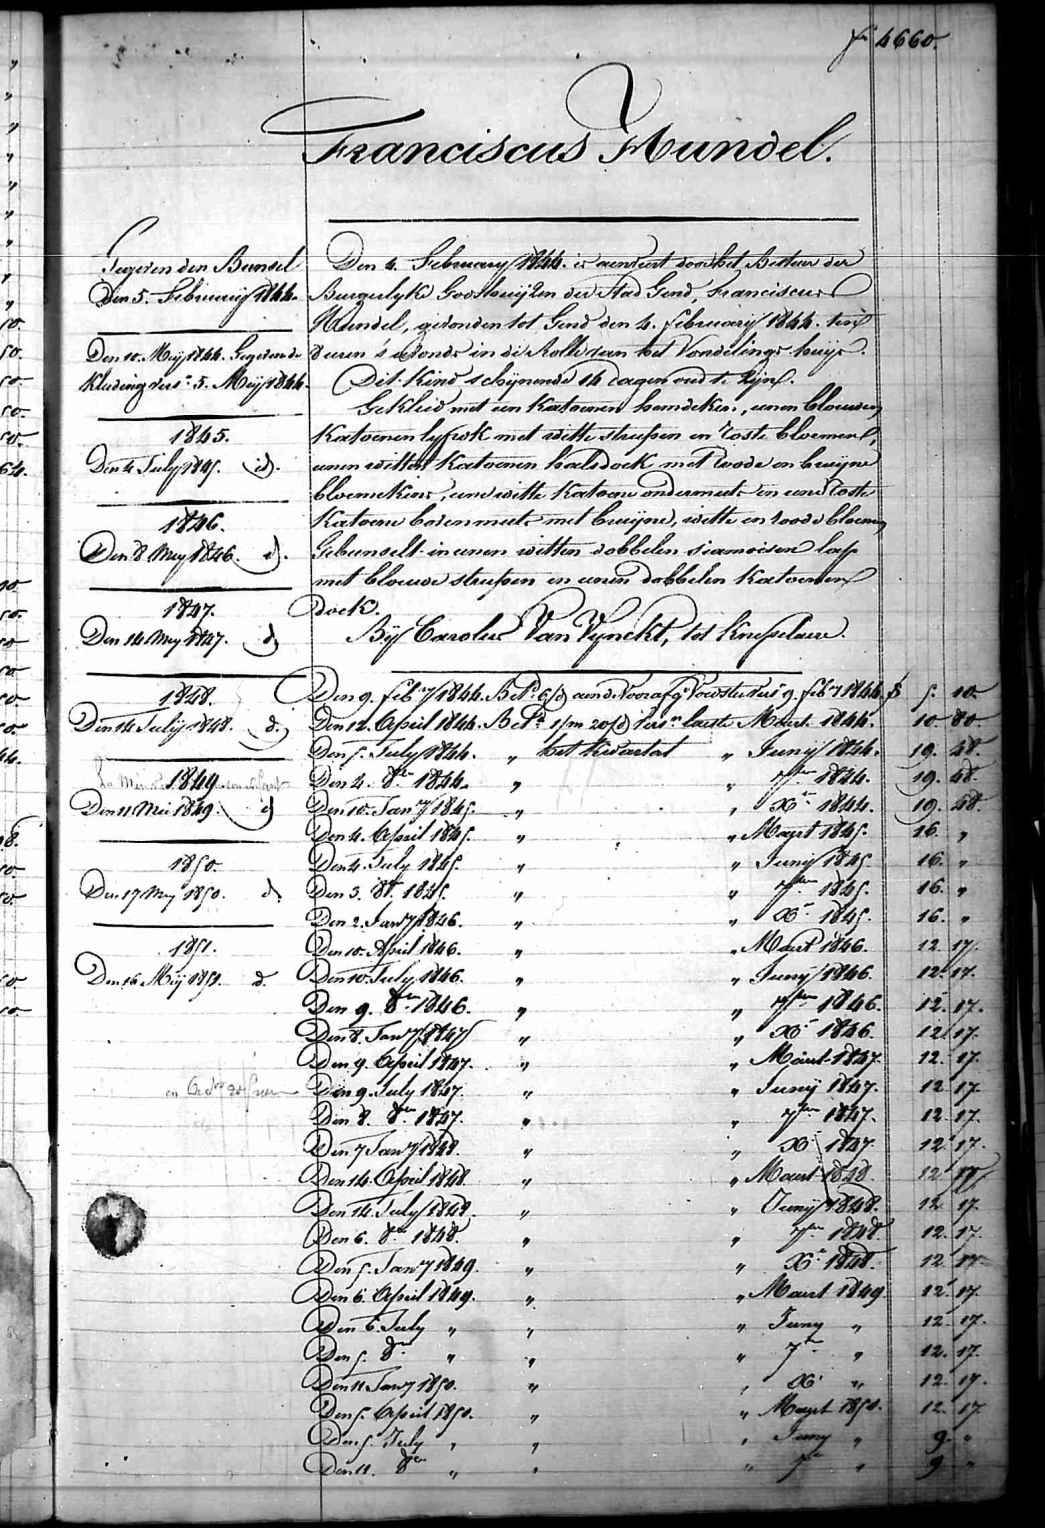 4660.
Franciscus Hundel.
Gegeven den Bunsel
Den 5. February 1844.
Den 10. Meij 1844. Gegeven de
Kleeding vers. 5. Meij 1844.
1845.
Den 4 July 1845. id.
1846.
Den 8 Mey 1846. d.
1847.
Den 14 Mey 1847. d.
1848.
Den 14 Julij 1848. d.
1849
Den 11 Mei 1849. id
1850.
Den 17 Mey 1850. d.
1851.
Den 16 Meij 1851. d.
Den 4. February 1844. is aenveert door het Bestuer der
Burgerlyke Godshuijzen der Stad Gend, Franciscus
Hundel, gevonden tot Gend den 4. february 1844. tien
ueren s'avonds in de Rolle van het Vondelings huijs.
Dit Kind schijnende 14 dagen oud te Zijn.
Gekleed met een Katoenen hemdeken, eenen blauwen
Katoenen lyfrok met witte streepen en roste bloemen,
eenen witten Katoenen halsdoek met roode en bruyne
bloemekens, eene witte Katoene ondermuts en eene roste
Katoene bovenmuts met bruijne, witte en roode bloemen
Gebunselt in eenen witten dobbelen siamoisen lap
met blauwe streepen en eenen dobbelen Katoenen
doek.
Bij Carolus Van Vynckt, tot Knesselaere.
Den 9. feb.y 1844. Bet. aen de Voorafg. Voedster vers 9. feb.y 1844. 5. 10.
Den 12. April 1844. Bet. 1/m 20/d vers. laeste Maert 1844. 10 80
Den 5. July 1844. " het Kwartal " Junij 1844. 19. 48.
Den 4. 8er 1844. " " 7ber 1844. 19. 48.
Den 10. Jan.y 1845. " " Xr 1844. 19. 48
Den 4. April 1845. " " Maert 1845. 16. "
Den 4. July 1845. " " Junij 1845 16. "
Den 3. 8r 1845. " " 7ber 1845. 16. "
Den 2. Jan.y 1846. " " Xr 1845. 16. "
Den 10. April 1846. " " Maert 1846. 12. 17.
Den 10. July 1846. " " Juny 1846 12. 17.
Den 9. 8er 1846. " " 7ber 1846. 12. 17.
Den 8. Jan.y 1847 " " Xr 1846. 12 17.
Den 9. April 1847. " " Maert 1847. 12. 17.
Den 9. July 1847. " " Junij 1847. 12 17.
Den 8. 8er 1847. " " 7ber 1847. 12. 17.
Den 7 Jan.y 1848. " " Xr 1847. 12 17.
Den 14 April 1848. " " Maert 1848. 12 17
Den 14 July 1848. " " Junij 1848. 12 17.
Den 6. 8er 1848. " " 7ber 1848 12. 17.
Den 5. Jan.y 1849. " " Xr 1848. 12 17.
Den 6. April 1849. " " Maert 1849 12. 17.
Den 6. July " " " Juny " 12. 17.
Den 5. 8er " " " 7er " 12. 17.
Den 11 Jan.y 1850. " " Xr " 12. 17.
Den 5. April 1850. " " Maert 1850. 12. 17.
Den 5. July " " " Juny " 9. "
Den 11. 8er " " " 7er " 9 "